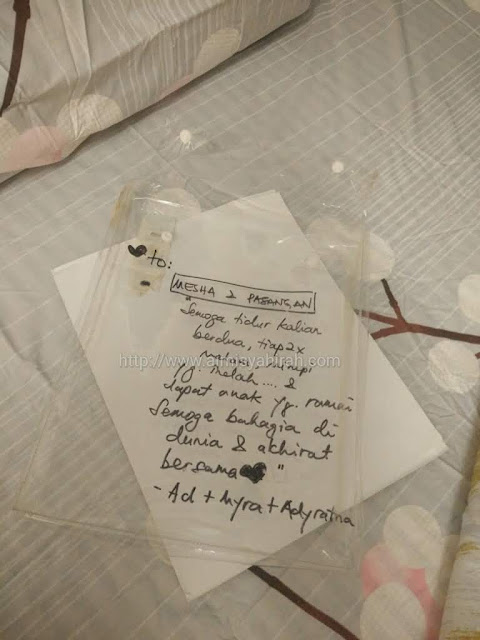 ♥ to:
MESHA & PASANGAN
"Semoga tidur kalian
berdua, tiap2x
mimpi
http://www.ainnisyahirah.com
yg. indah.... &
dapat anak yg. ramai
Semoga bahagia di
dunia & achirat
bersama ♥ "
- Ad + Myra + Adyratna